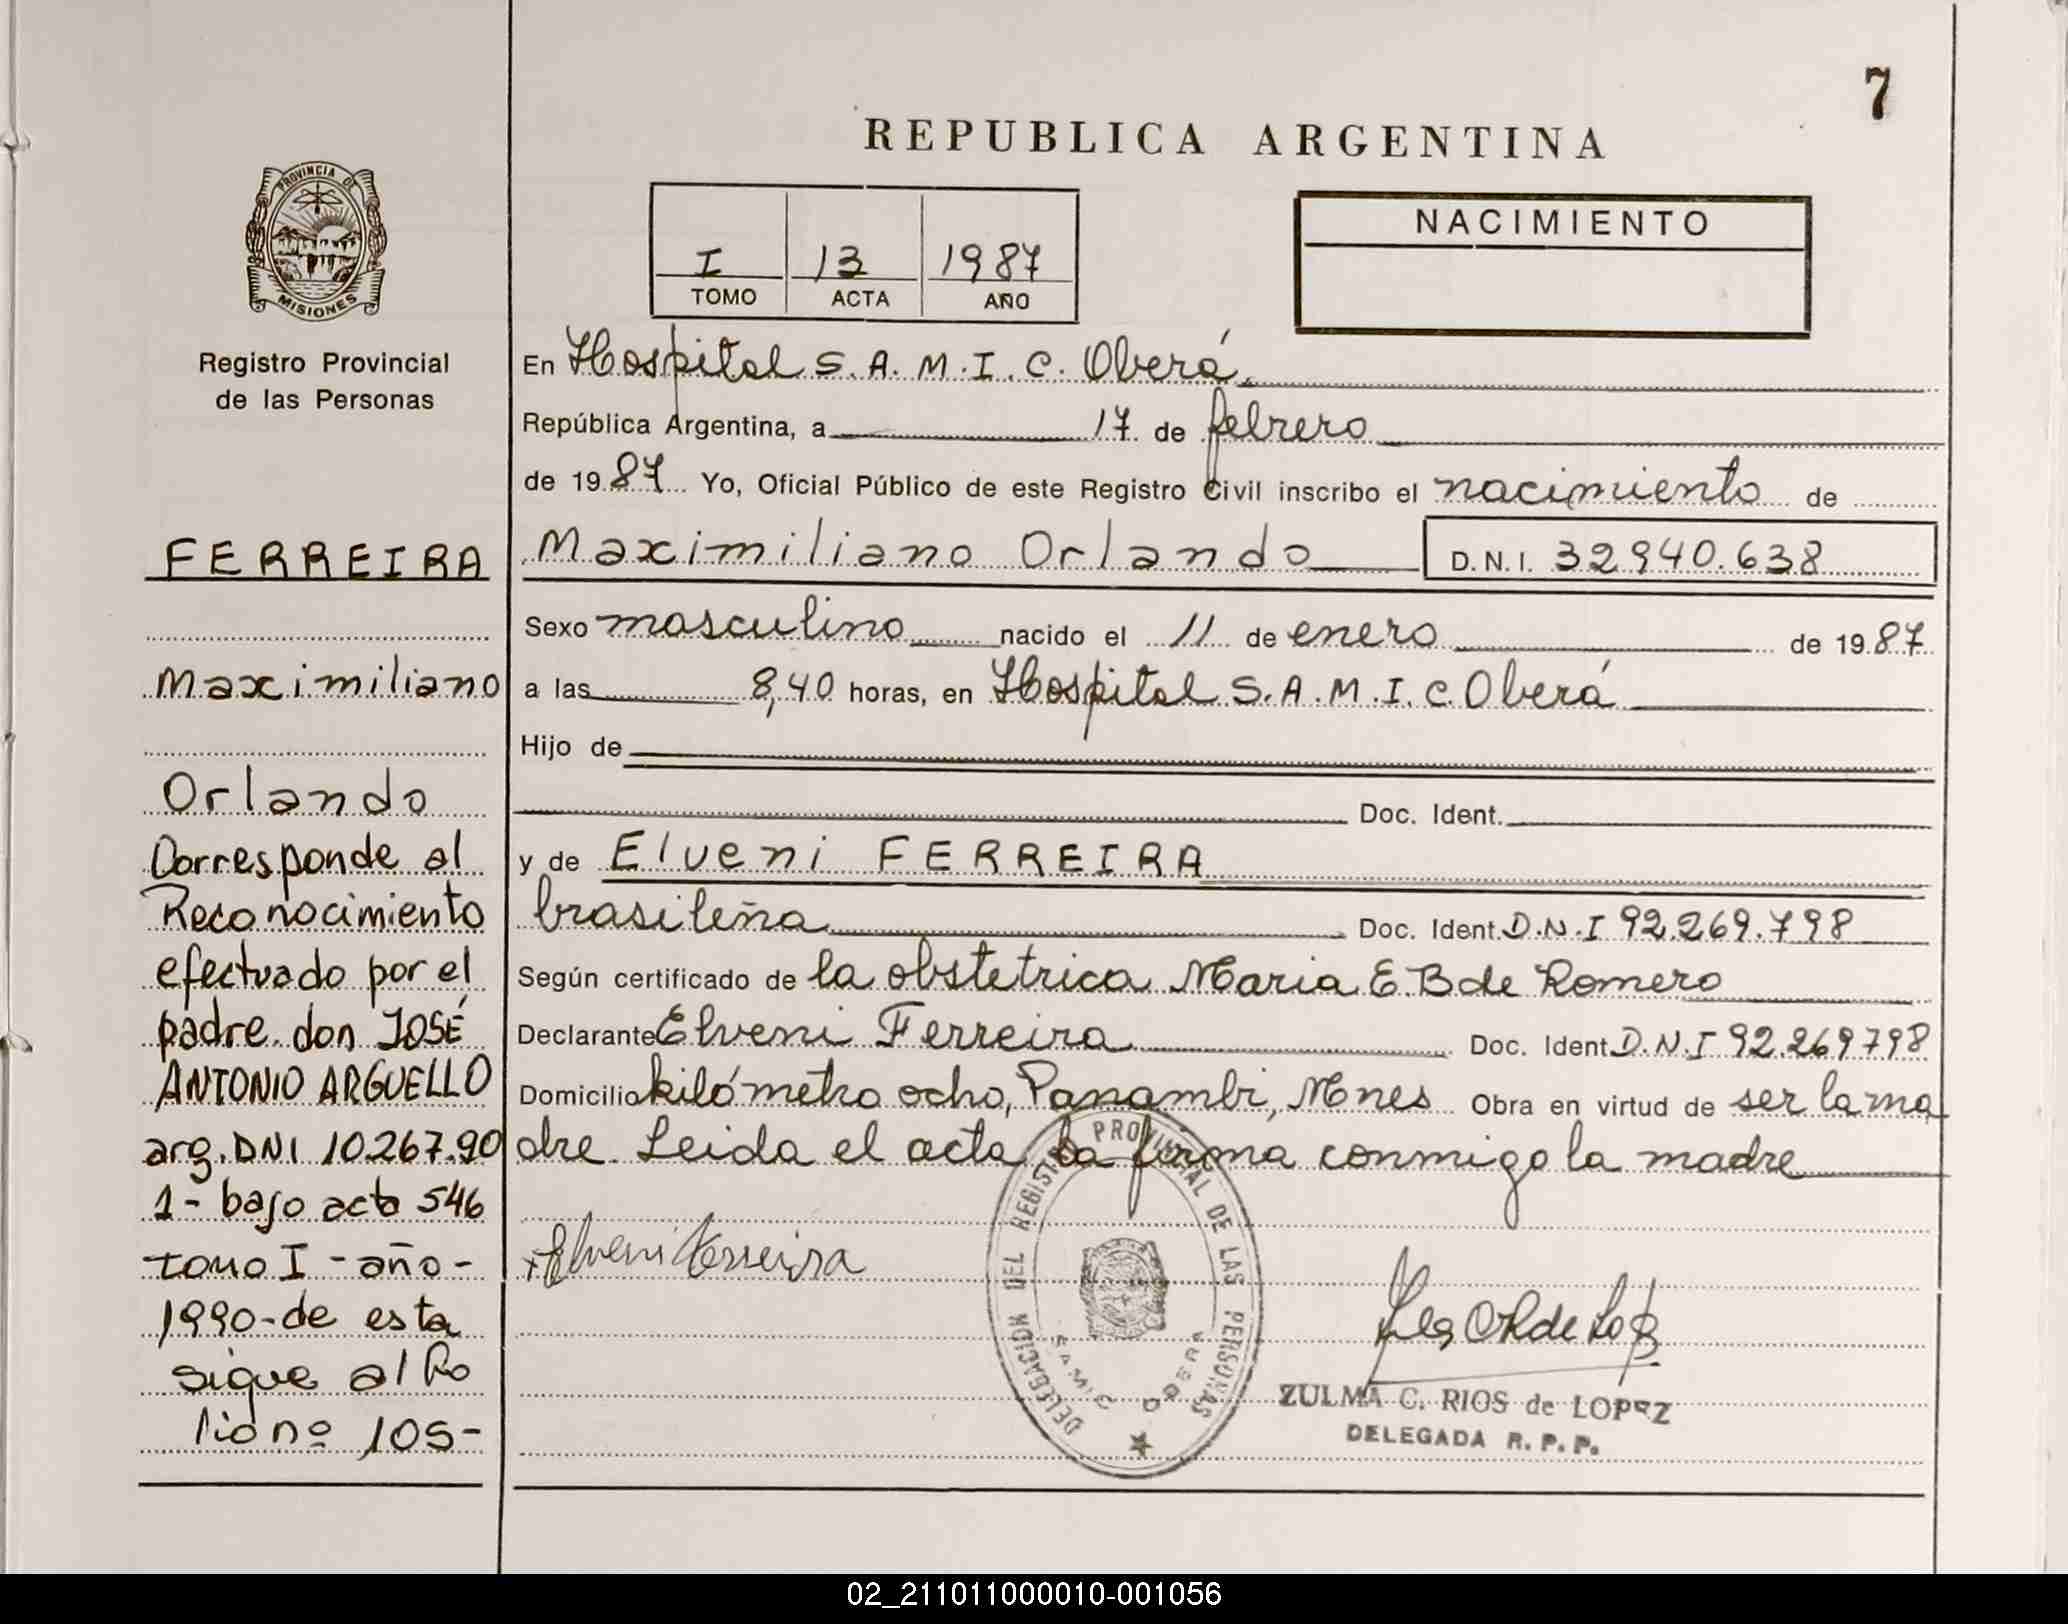 7
REPUBLICA ARGENTINA
PROVINCIA DE
MISIONES
Registro Provincial
de las Personas
I 13 1987
TOMO ACTA AÑO
NACIMIENTO
En Hospital S.A.M.I.C. Oberá
República Argentina, a 17 de febrero
de 1987 Yo, Oficial Público de este Registro Civil inscribo el nacimiento de
Maximiliano Orlando D.N.I. 32940.638
Sexo masculino nacido el 11 de enero de 1987
a las 8,40 horas, en Hospital S.A.M.I.C. Oberá
Hijo de
Doc. Ident.
y de Elveni FERREIRA
brasileña Doc. Ident. D.N.I 92.269.798
Según certificado de la obstetrica Maria E. B de Romero
Declarante Elveni Ferreira Doc. Ident. D.N.I 92.269798
Domicilio kilómetro ocho, Panambi, Mnes Obra en virtud de ser la ma
dre. Leida el acta la firma conmigo la madre
Elveni Ferreira
DELEGACION DEL REGISTRO PROVINCIAL DE LAS PERSONAS
SAMIC OBERA
ZULMA C. RIOS de LOPEZ
DELEGADA R. P. P.
FERREIRA
Maximiliano
Orlando
Corresponde al
Reconocimiento
efectuado por el
padre. don JOSÉ
ANTONIO ARGUELLO
arg. DNI 10.267.90
1- bajo acta 546
tomo I - año -
1990-de esta
sigue al fo
lio nº 105-
02_211011000010-001056